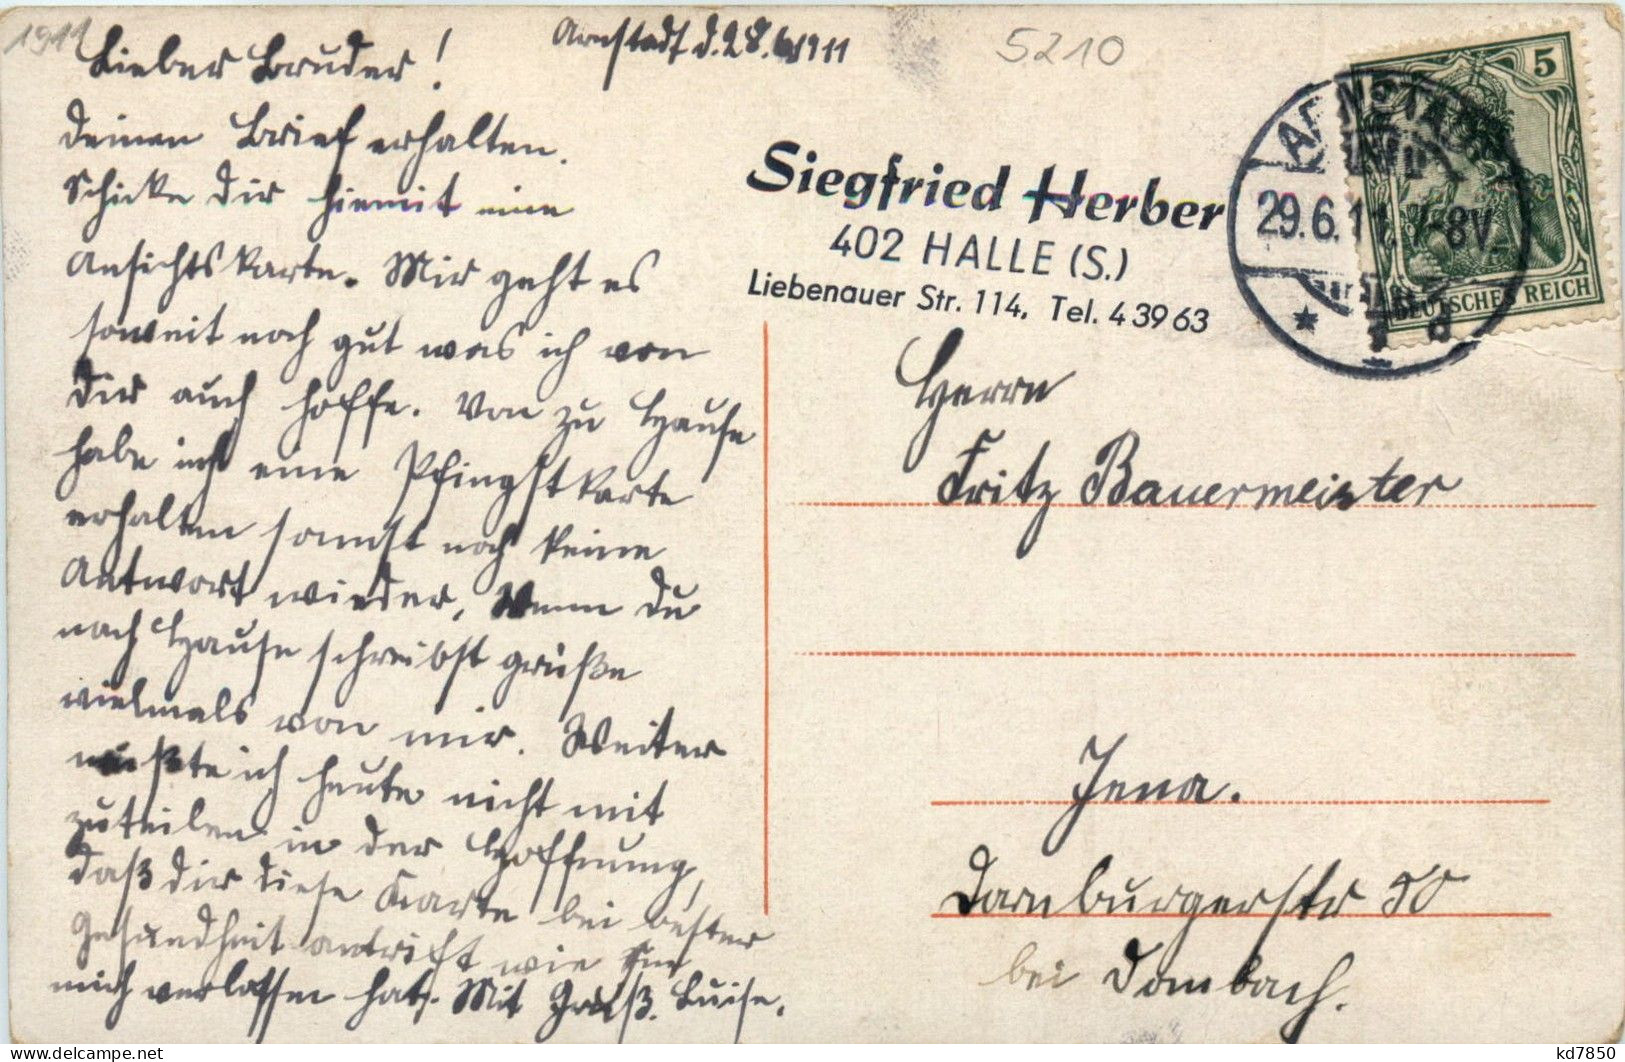 1911
Arnstadt d. 28.6.1911
5210
Lieber Bruder!
deinen Brief erhalten.
Schicke dir hiermit eine
Ansichtskarte. Mir geht es
soweit noch gut was ich von
dir auch hoffe. Von zu Hause
habe ich eine Pfingstkarte
erhalten sonnst noch keine
Antwort wieder, Wenn du
nach Hause schreibst grüße
vielmals von mir. Weiter
wüßte ich heute nicht mit
zuteilen in der Hoffnung,
daß dir diese Karte bei bester
Gesundheit antrifft wie sie
mich verlassen hat. Mit Gruß. Luise.
Siegfried Herber
402 HALLE (S.)
Liebenauer Str. 114, Tel. 4 39 63
ARNSTADT
29.6.11. 7-8V.
* d
5
DEUTSCHES REICH
Herrn
Fritz Bauermeister
Jena.
Dornburgerstr
bei Dombach.
kd7850